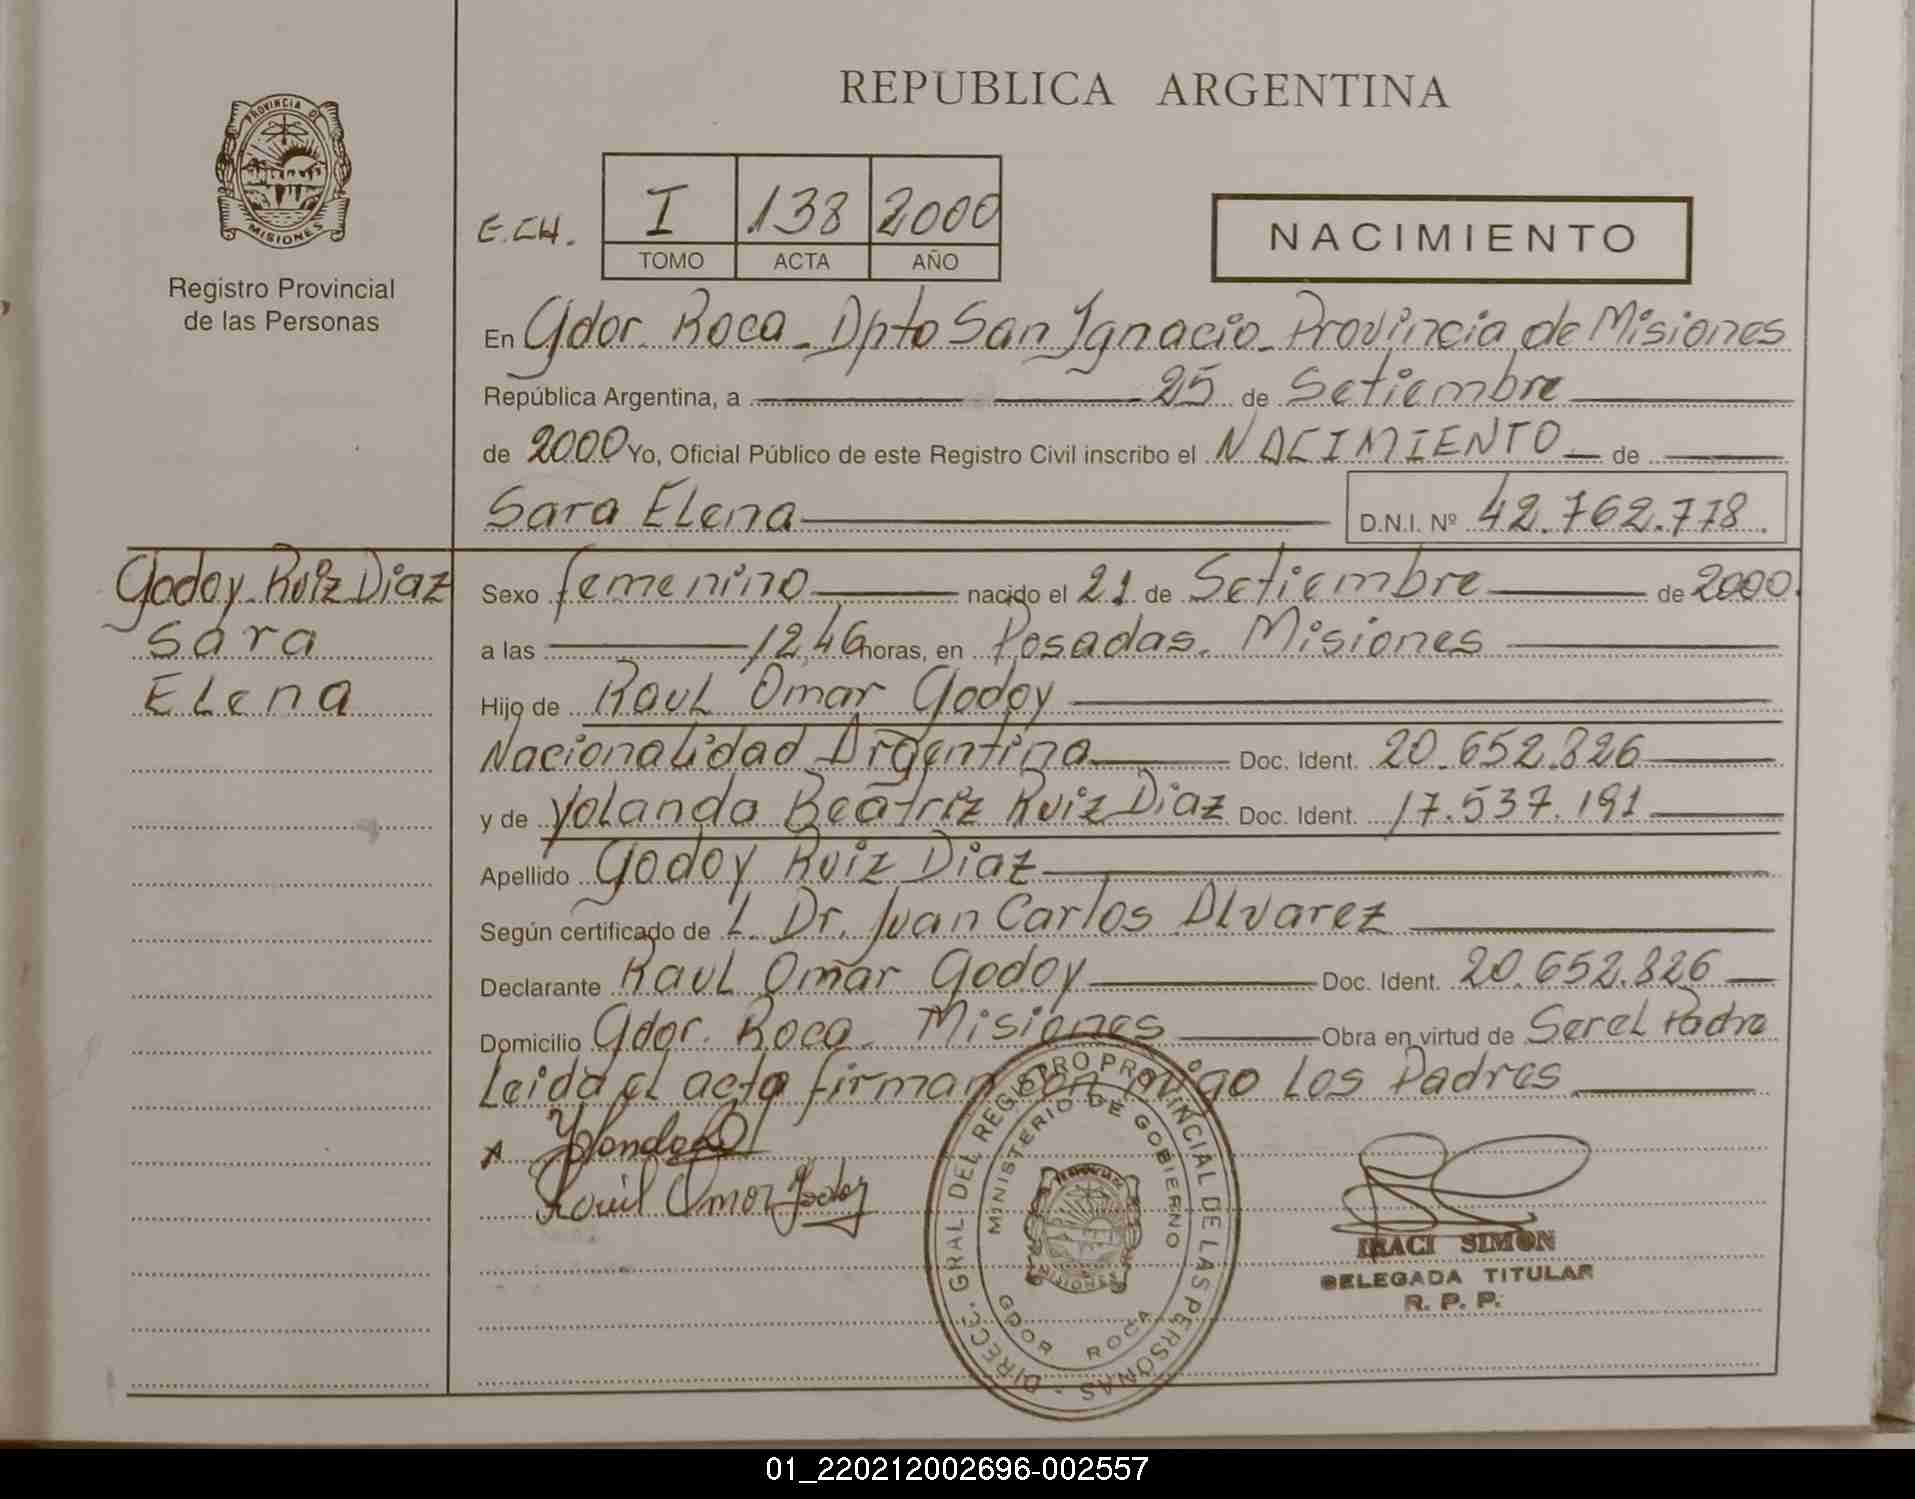 REPUBLICA ARGENTINA
PROVINCIA DE
MISIONES
Registro Provincial
de las Personas
E.CH.
I 138 2000
TOMO ACTA AÑO
NACIMIENTO
En Gdor. Roca - Dpto San Ignacio - Provincia de Misiones
República Argentina, a 25 de Setiembre
de 2000 Yo, Oficial Público de este Registro Civil inscribo el NACIMIENTO de
Sara Elena D.N.I. Nº 42.762.778.
Godoy Ruiz Diaz
Sara
Elena
Sexo femenino nacido el 21 de Setiembre de 2000.
a las 12,46 horas, en Posadas. Misiones
Hijo de Raul Omar Godoy
Nacionalidad Argentina Doc. Ident. 20.652.826
y de Yolanda Beatriz Ruiz Diaz Doc. Ident. 17.537.191
Apellido Godoy Ruiz Diaz
Según certificado de L. Dr. Juan Carlos Alvarez
Declarante Raul Omar Godoy Doc. Ident. 20.652.826
Domicilio Gdor. Roca - Misiones Obra en virtud de Ser el Padre
Leida el acta firman con migo Los Padres
Raúl Omar Godoy
DIRECC. GRAL. DEL REGISTRO PROVINCIAL DE LAS PERSONAS -
MINISTERIO DE GOBIERNO
MISIONES
GDOR ROCA
IRACI SIMON
DELEGADA TITULAR
R. P. P.
01_220212002696-002557